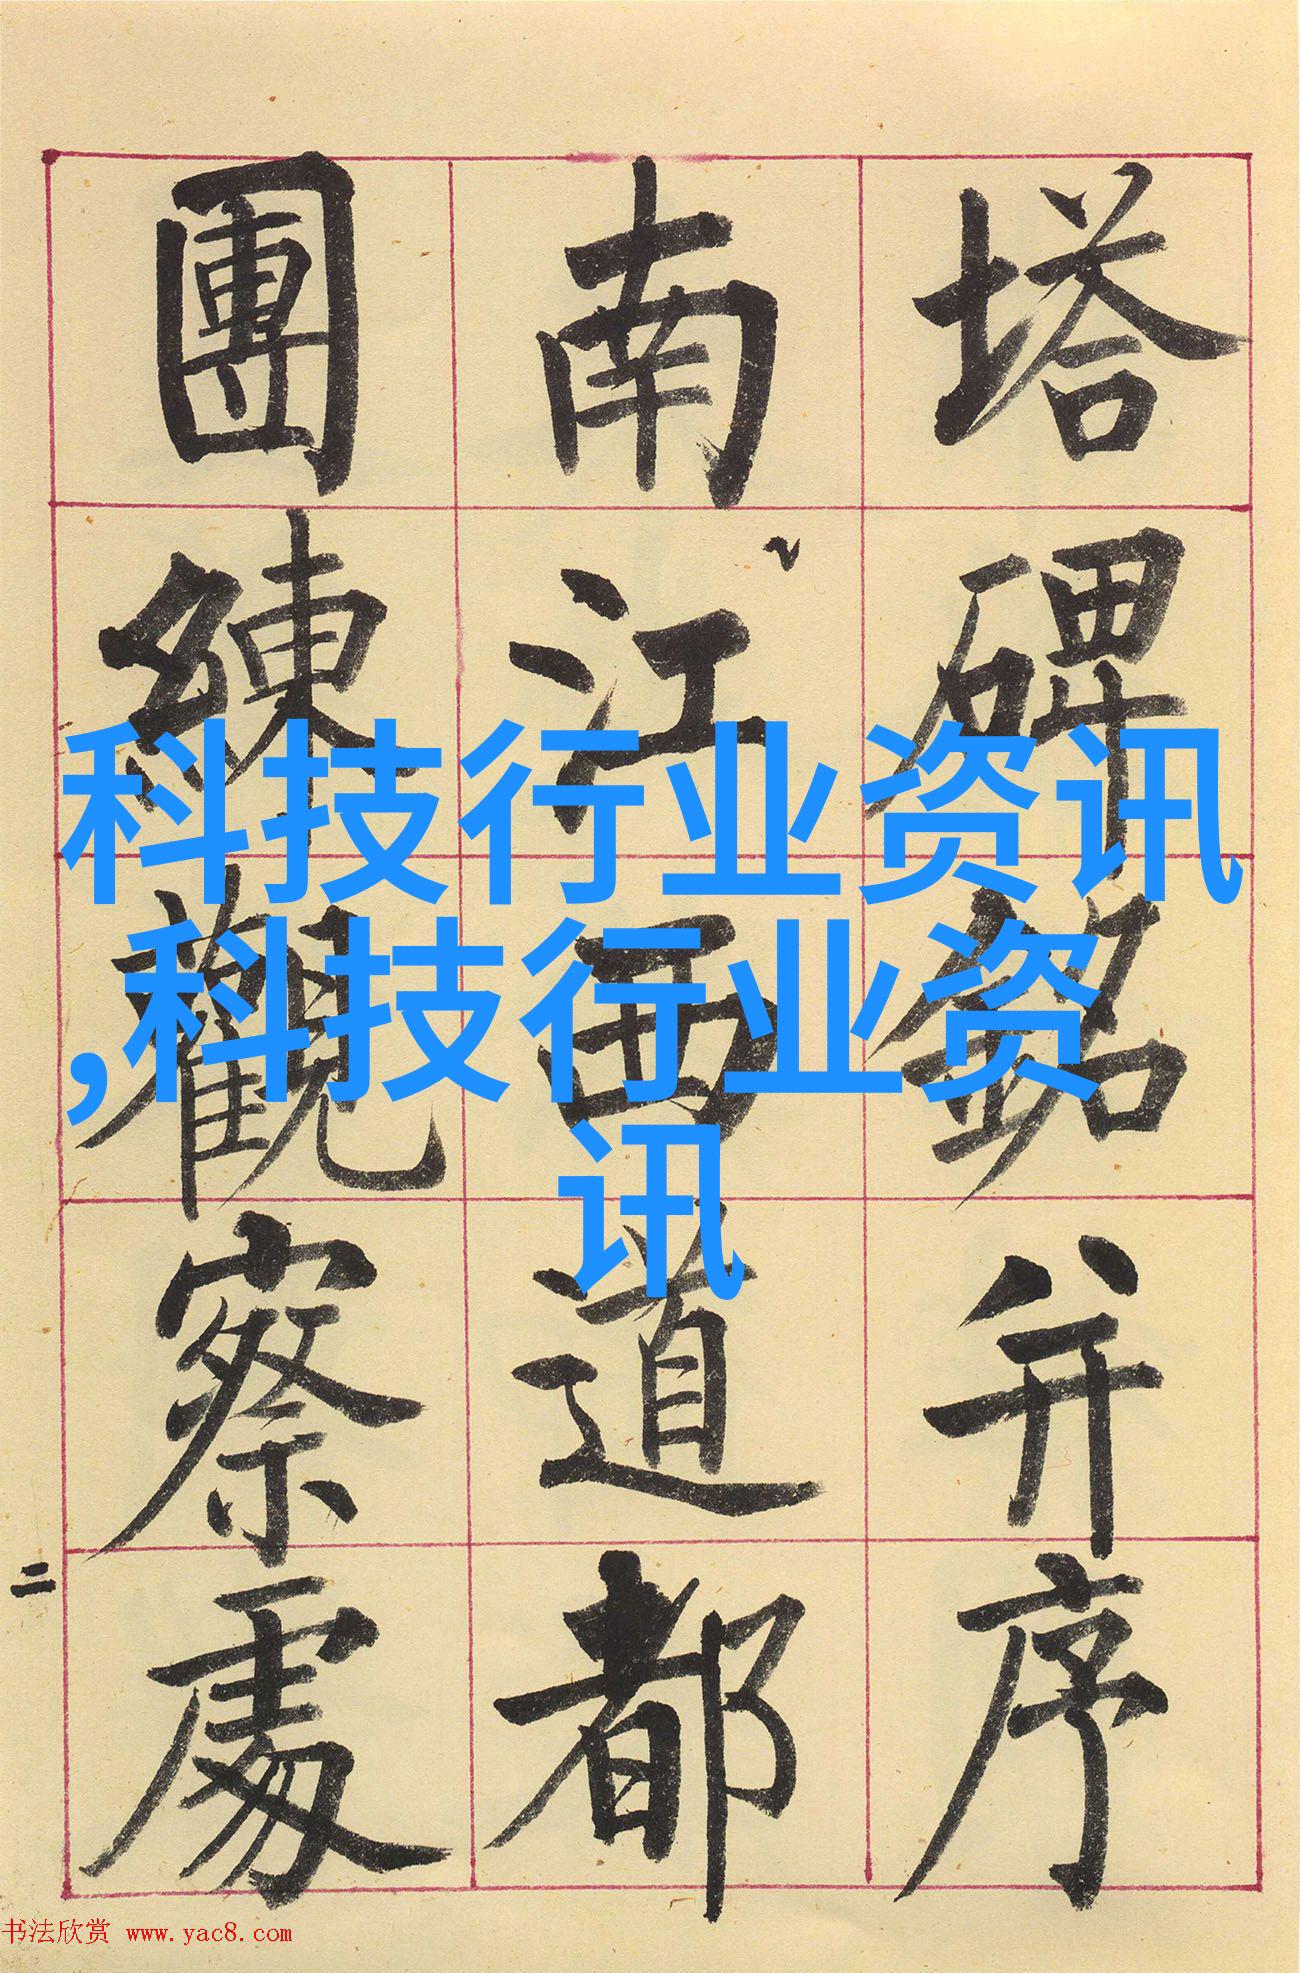 塔碑銘并序
南江西道都
團練觀察處
二
科技行业资讯
,科技行业资
讯
书法欣赏 www.yac8.com